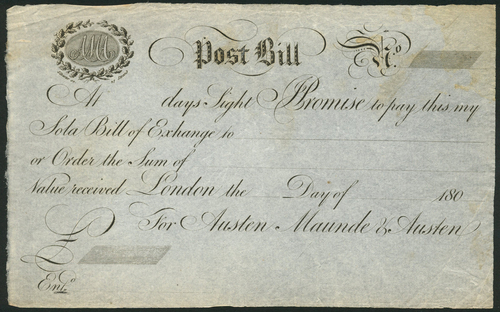 Post Bill No.
At days Sight I Promise to pay this my
Sola Bill of Exchange to
or Order the Sum of
Value received London the Day of 180
For Austen Maunde & Austen
£
Entd.